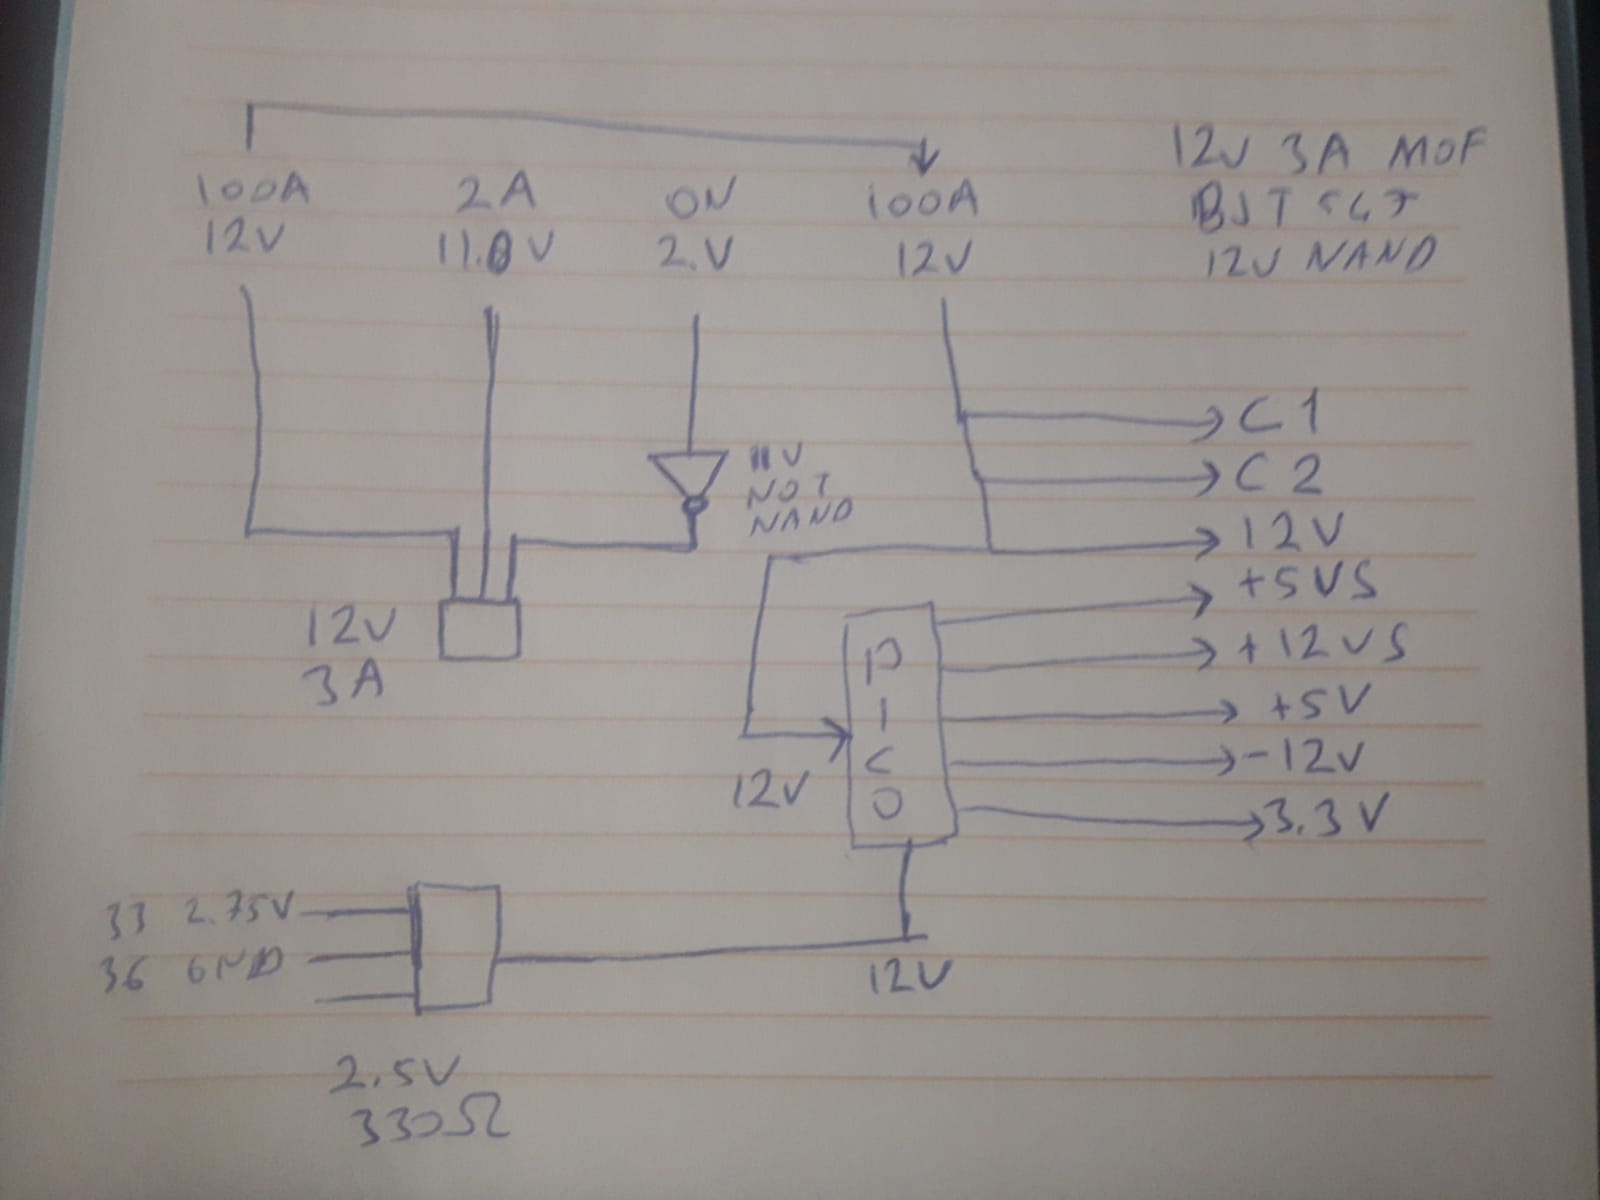 100A
12V
2A
11.0V
ON
2.V
100A
12V
12V 3A MOF
BJT
12V NAND
11V
NOT
NAND
C1
C2
12V
+5VS
+12VS
+5V
-12V
3.3V
12V
3A
PICO
12V
33 2.75V
36 GND
12V
2.5V
330Ω